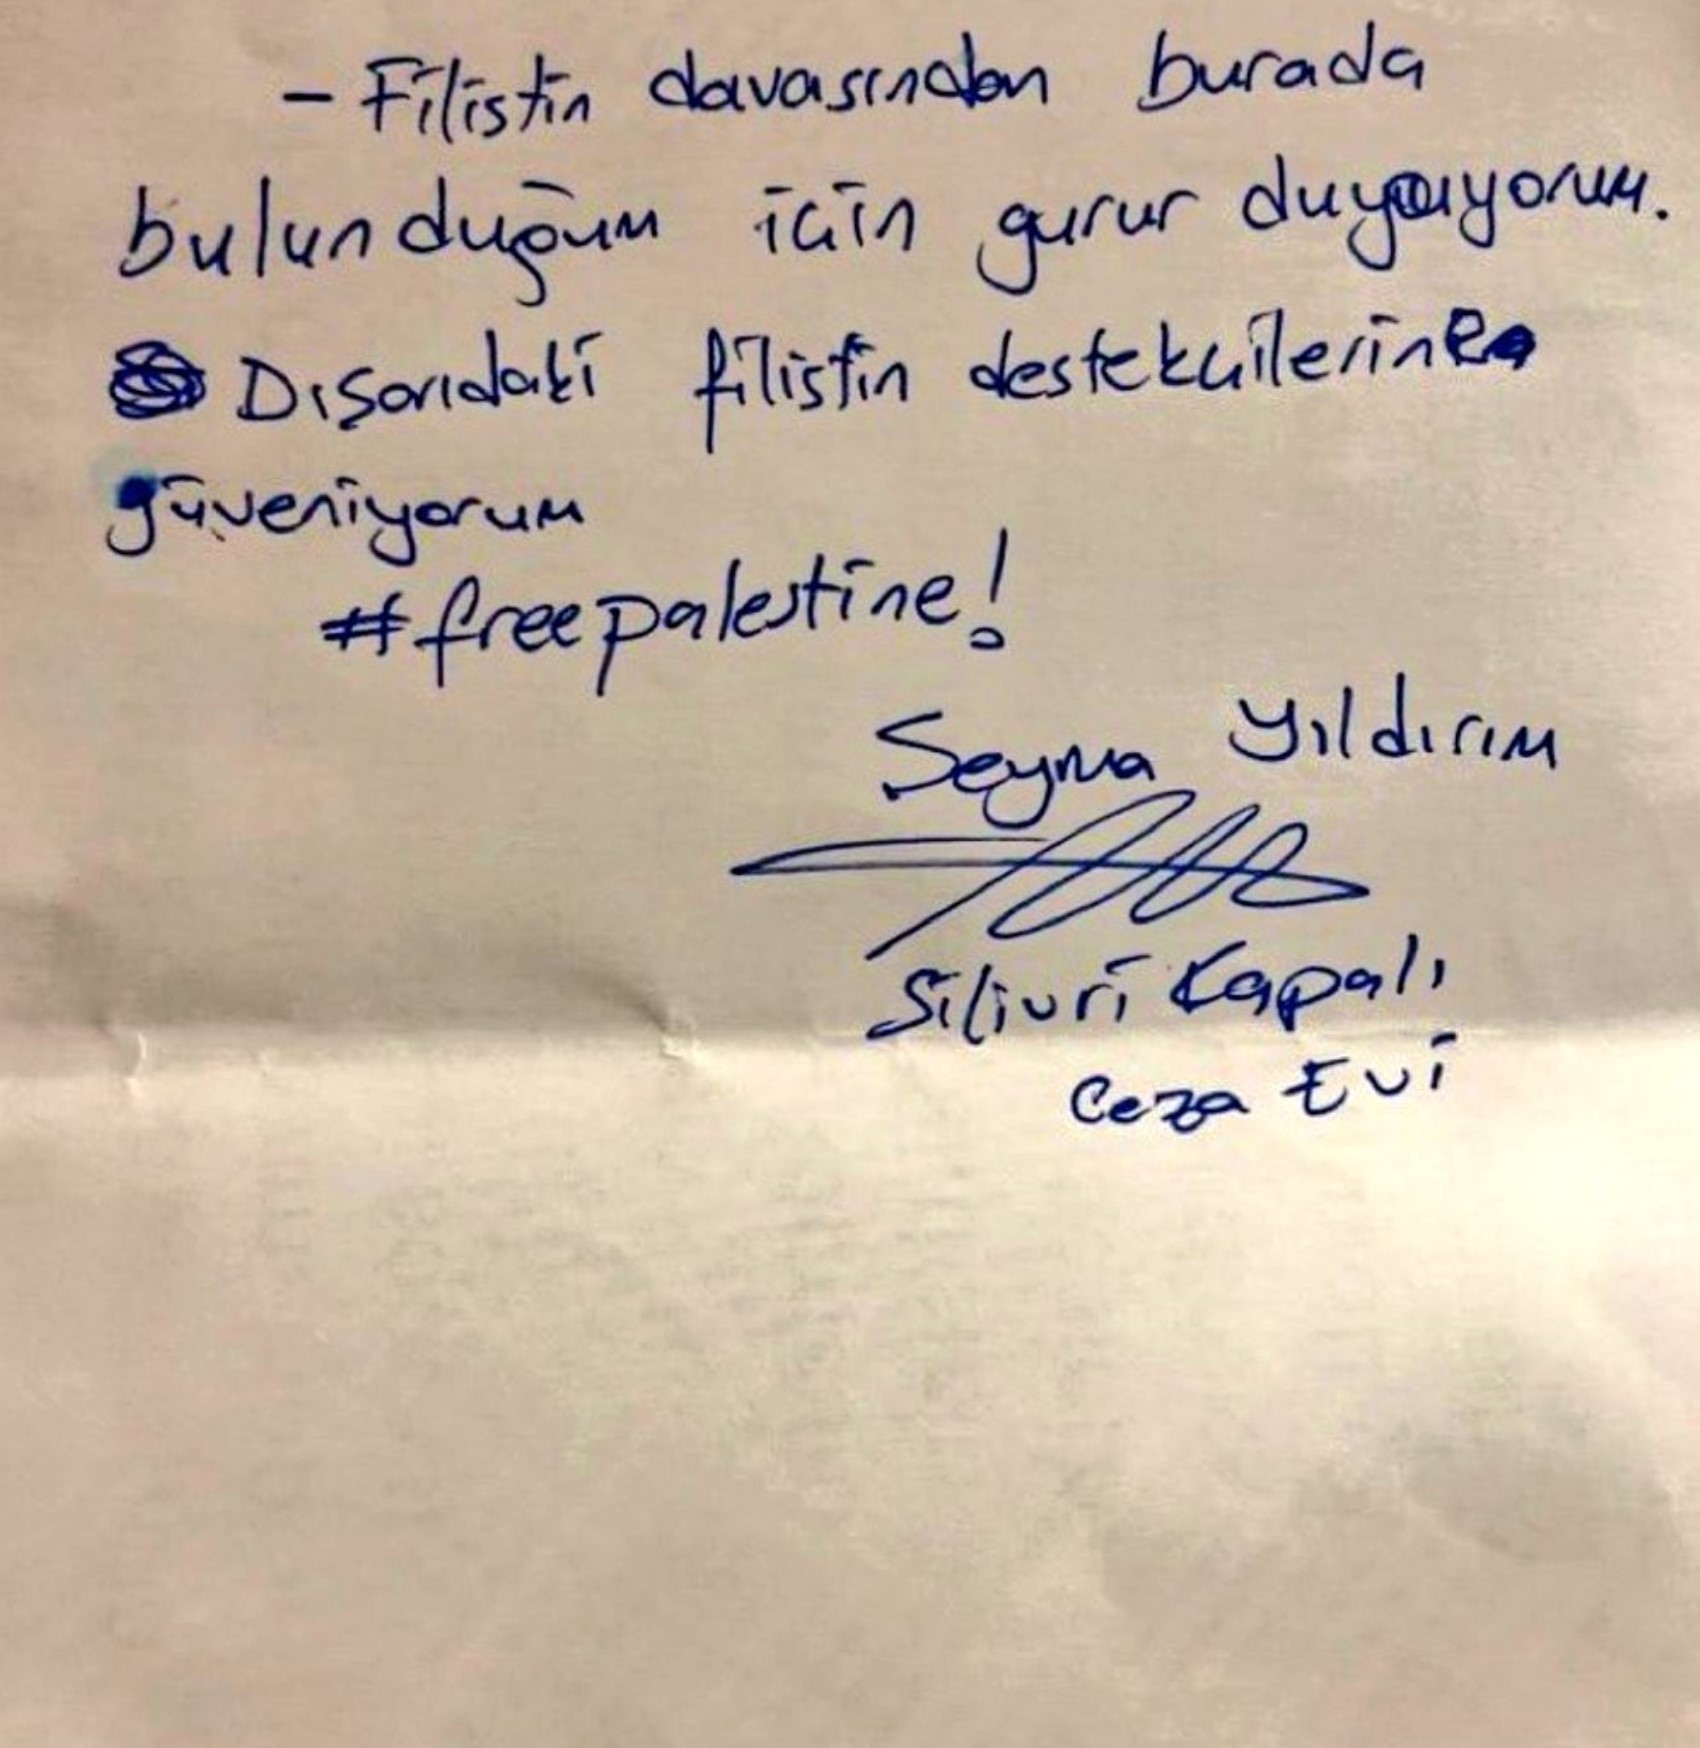 - Filistin davasından burada
bulunduğum için gurur duyuyorum.
Dışarıdaki filistin destekçilerine
güveniyorum
#freepalestine!
Şeyma Yıldırım
Silivri Kapalı
Ceza Evi